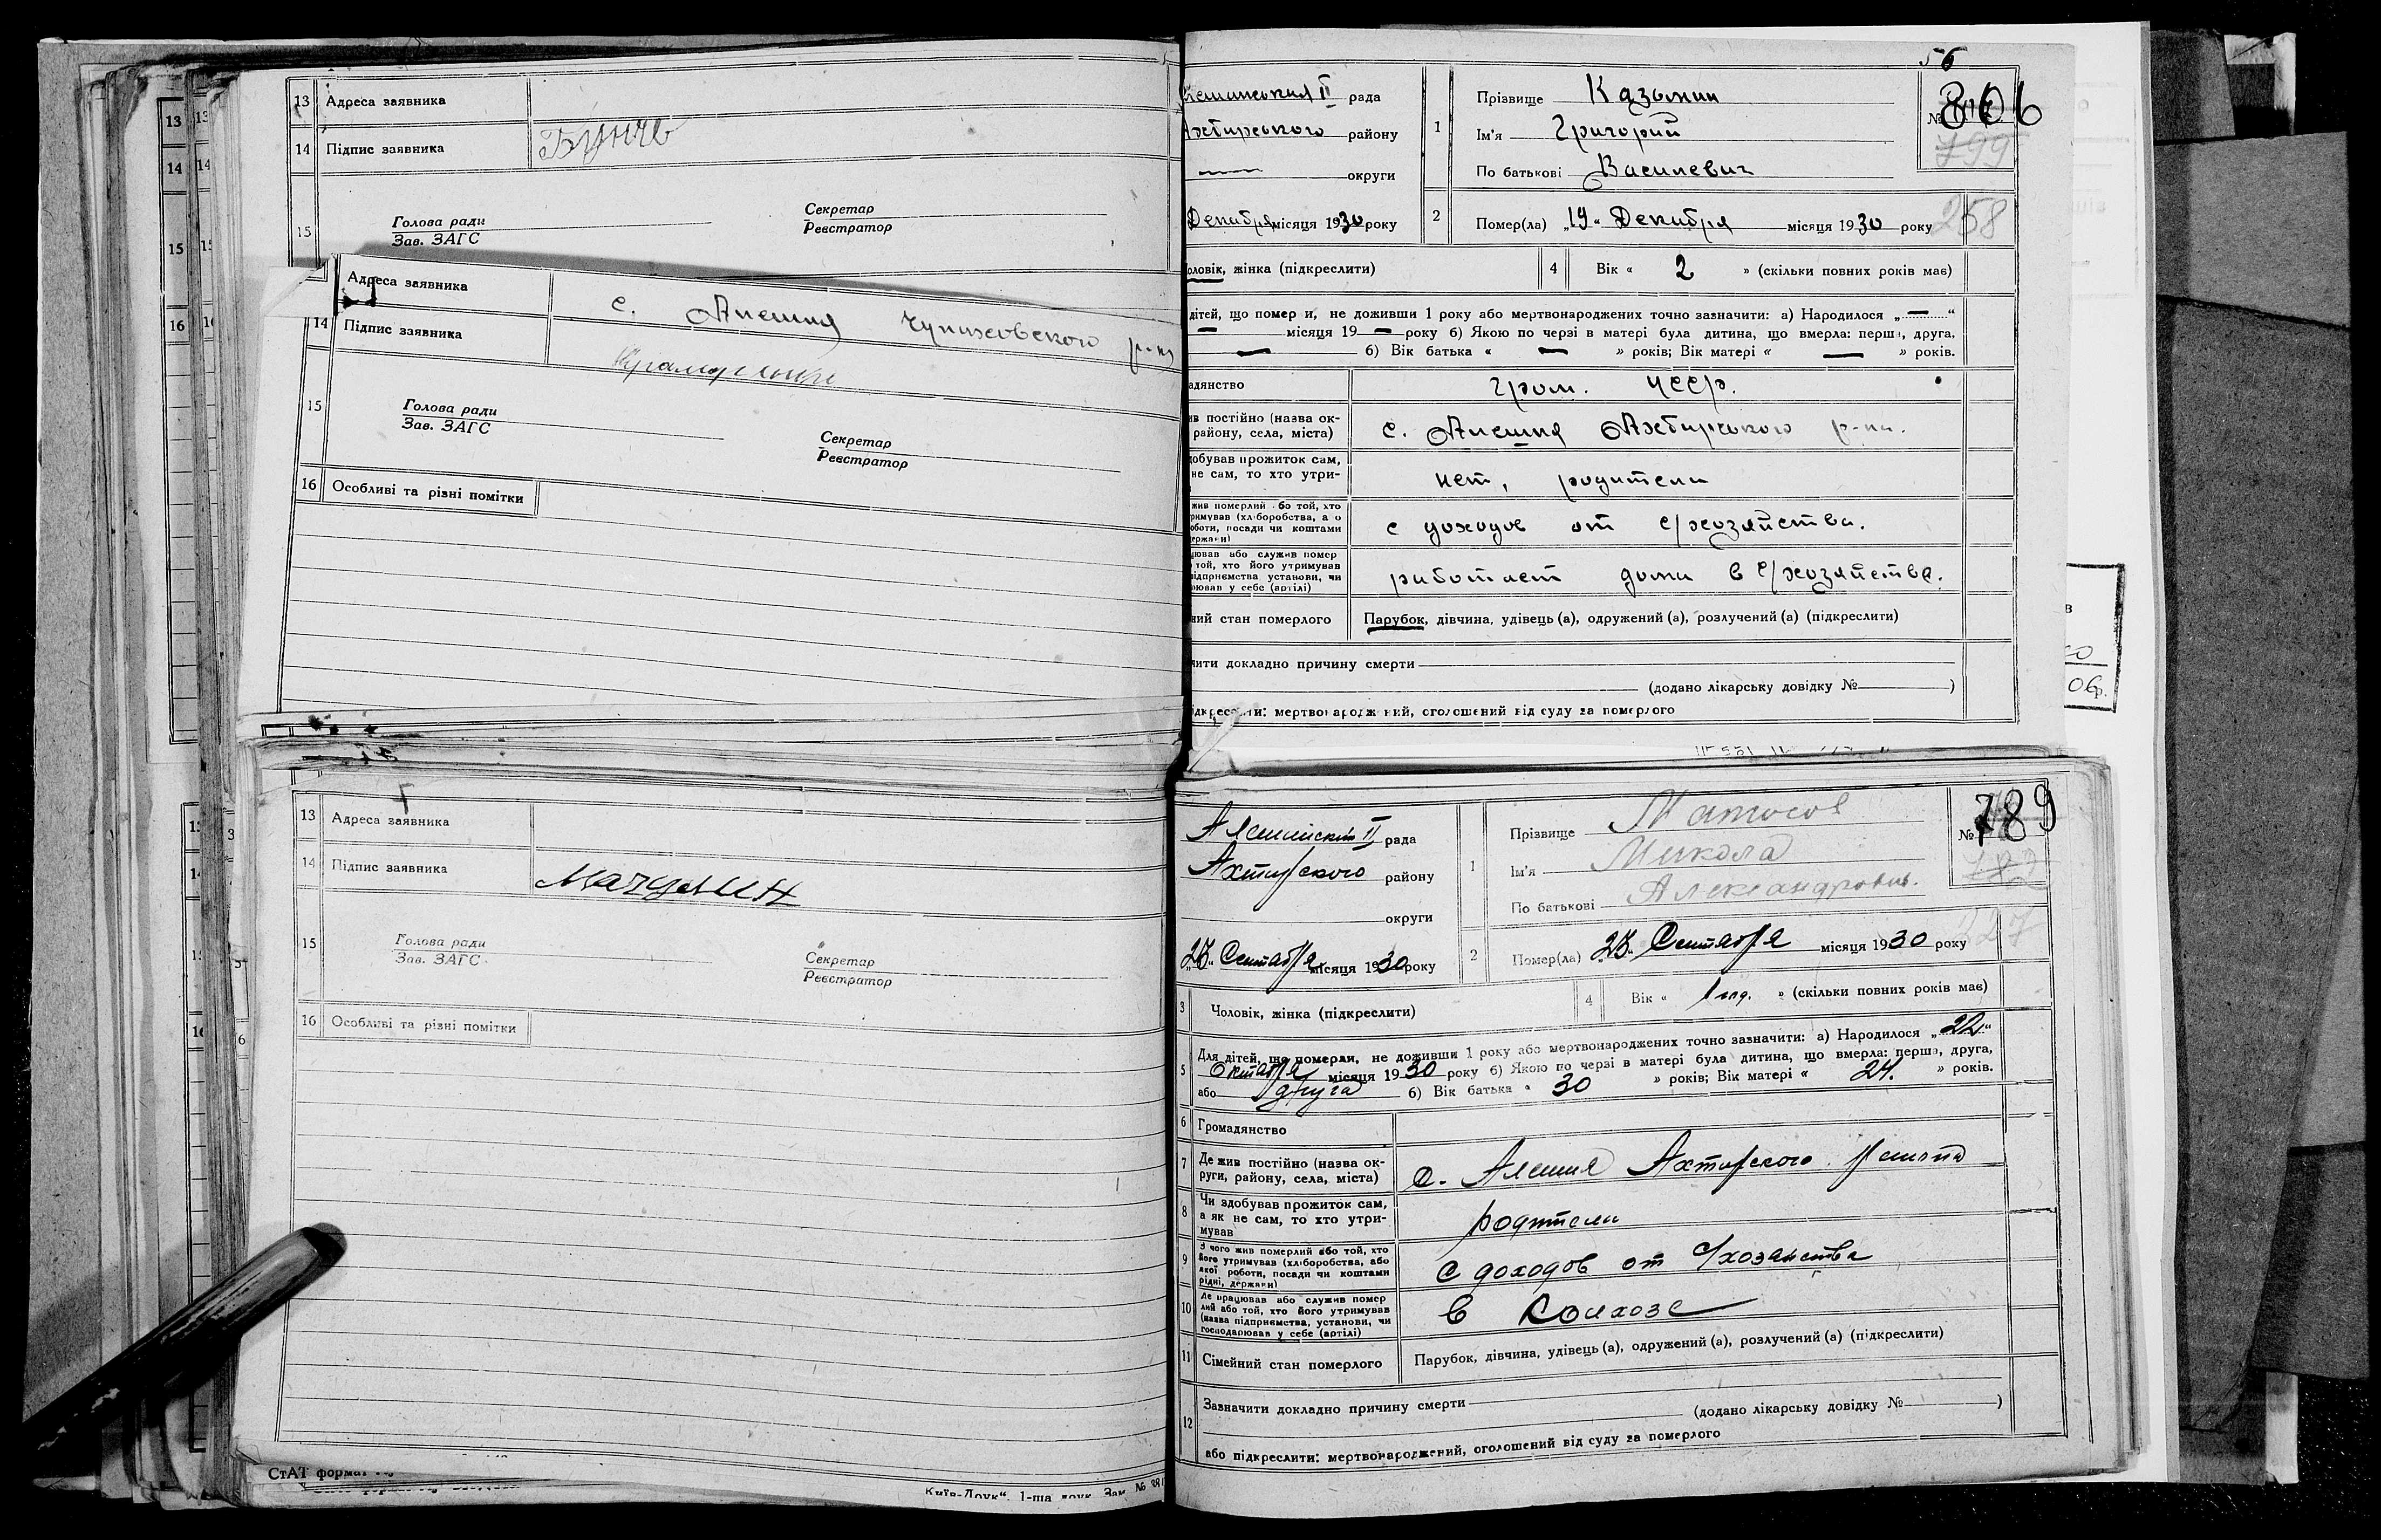 13 Адреса заявника
14 Підпис заявника
15 Голова ради
Зав. ЗАГС
Секретар
Реєстратор
Адреса заявника с. Алешня Чупиховского р-на
14 Підпис заявника
15 Голова ради
Зав. ЗАГС
Секретар
Реєстратор
16 Особливі та різні помітки
13 Адреса заявника
14 Підпис заявника Мачулин
15 Голова ради
Зав. ЗАГС
Секретар
Реєстратор
16 Особливі та різні помітки
СтАТ формат
Київ-Друк“. 1-ша друк. Зам. №
56
рада
Ахтирського району
округи
Декабря місяця 1930 року
1 Прізвище Казьмин
Ім'я Григорий
По батькові Васильевич
№ 806
799
2 Помер(ла) „19“ Декабря місяця 1930 року
258
оловік, жінка (підкреслити)
4 Вік « 2 » (скільки повних років має)
дітей, що помер и, не доживши 1 року або мертвонароджених точно зазначити: а) Народилося „ — “
— місяця 19 — року б) Якою по черзі в матері була дитина, що вмерла: перша, друга,
— б) Вік батька « — » років; Вік матері « — » років.
адянство гром. УССР.
ив постійно (назва ок-
району, села, міста) с. Алешня Ахтирського р-на.
добував прожиток сам,
не сам, то хто утри- нет, родители
жив померлий або той, хто
римував (хліборобства, а о
оботи, посади чи коштами
ержави) с доходов от с/хозяйства.
ював або служив помер
той, хто його утримував
ідприємства установи, чи
ював у себе (артілі) работает дома в с/хозяйстве.
ний стан померлого Парубок, дівчина, удівець (а), одружений (а), розлучений (а) (підкреслити)
чити докладно причину смерти
(додано лікарську довідку № )
ідкреслити: мертвонароджений, оголошений від суду за померлого
Алешнский II рада
Ахтирского району
округи
„23“ Сентября місяця 1930 року
1 Прізвище Матосов
Ім'я Микола
По батькові Александрович.
№ 789
782
227
2 Помер(ла) „23“ Сентября місяця 1930 року
3 Чоловік, жінка (підкреслити)
4 Вік « 1 год. » (скільки повних років має)
5 Для дітей, що померли, не доживши 1 року або мертвонароджених точно зазначити: а) Народилося „22“
Октября місяця 1930 року б) Якою по черзі в матері була дитина, що вмерла: перша, друга,
або друга б) Вік батька « 30 » років; Вік матері « 24. » років.
6 Громадянство
7 Де жив постійно (назва ок-
руги, району, села, міста) с. Алешня Ахтирского района
8 Чи здобував прожиток сам,
а як не сам, то хто утри-
мував родители
9 З чого жив померлий або той, хто
його утримував (хліборобства, або
якої роботи, посади чи коштами
рідні, держави) с доходов от с/хозяйства
10 Де працював або служив помер
лий або той, хто його утримував
(назва підприємства, установи, чи
господарював у себе (артілі) в колхозе
11 Сімейний стан померлого Парубок, дівчина, удівець (а), одружений (а), розлучений (а) (підкреслити)
12 Зазначити докладно причину смерти
(додано лікарську довідку № )
або підкреслити: мертвонароджений, оголошений від суду за померлого